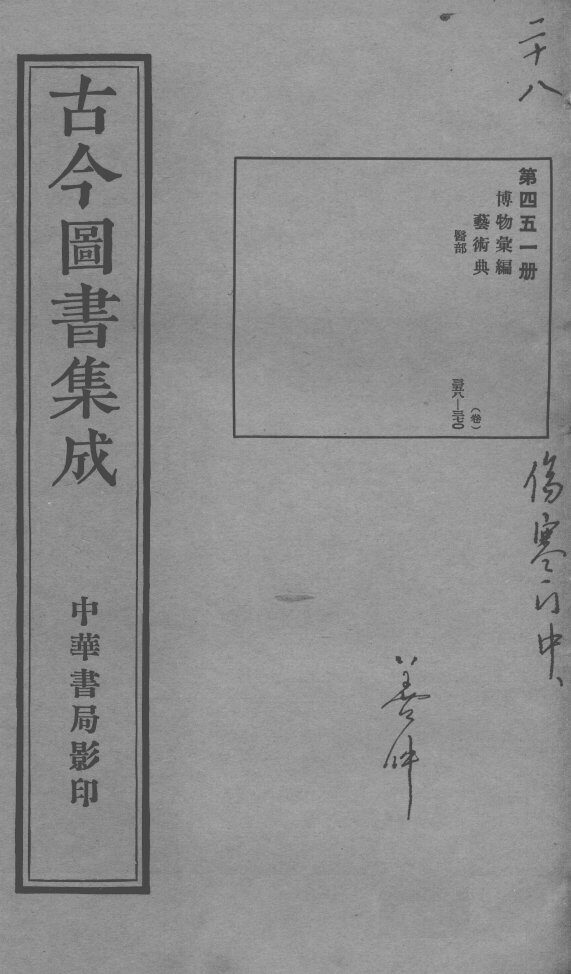 二十八
第四五一册
博物彙編
藝術典
醫部
(卷)
傷寒门中
善
古今圖書集成
中華書局影印